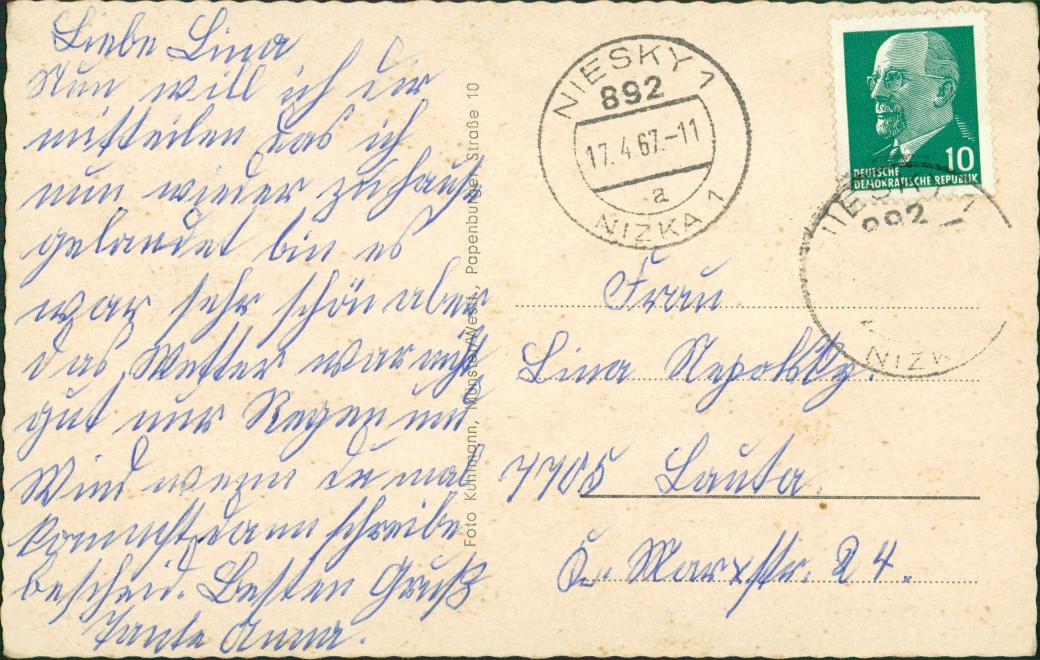 Liebe Lina
Nun will ich dir
mitteilen das ich
nun wieder zuhause
gelandet bin es
war sehr schön aber
das Wetter war nicht
gut nur Regen und
Wind wenn du mal
kommst dann schreibe
bescheid. Besten Gruß
Tante Anna.
Foto Kuhlmann, Münster/Westf., Papenburger Straße 10
NIESKY 1
892
17.4.67.-11
a
NIZKA 1
10
DEUTSCHE
DEMOKRATISCHE REPUBLIK
NIESKY 1
892
NIZK
Frau
Lina Nepolsky.
7705 Lauta.
K. Marxstr. 24.